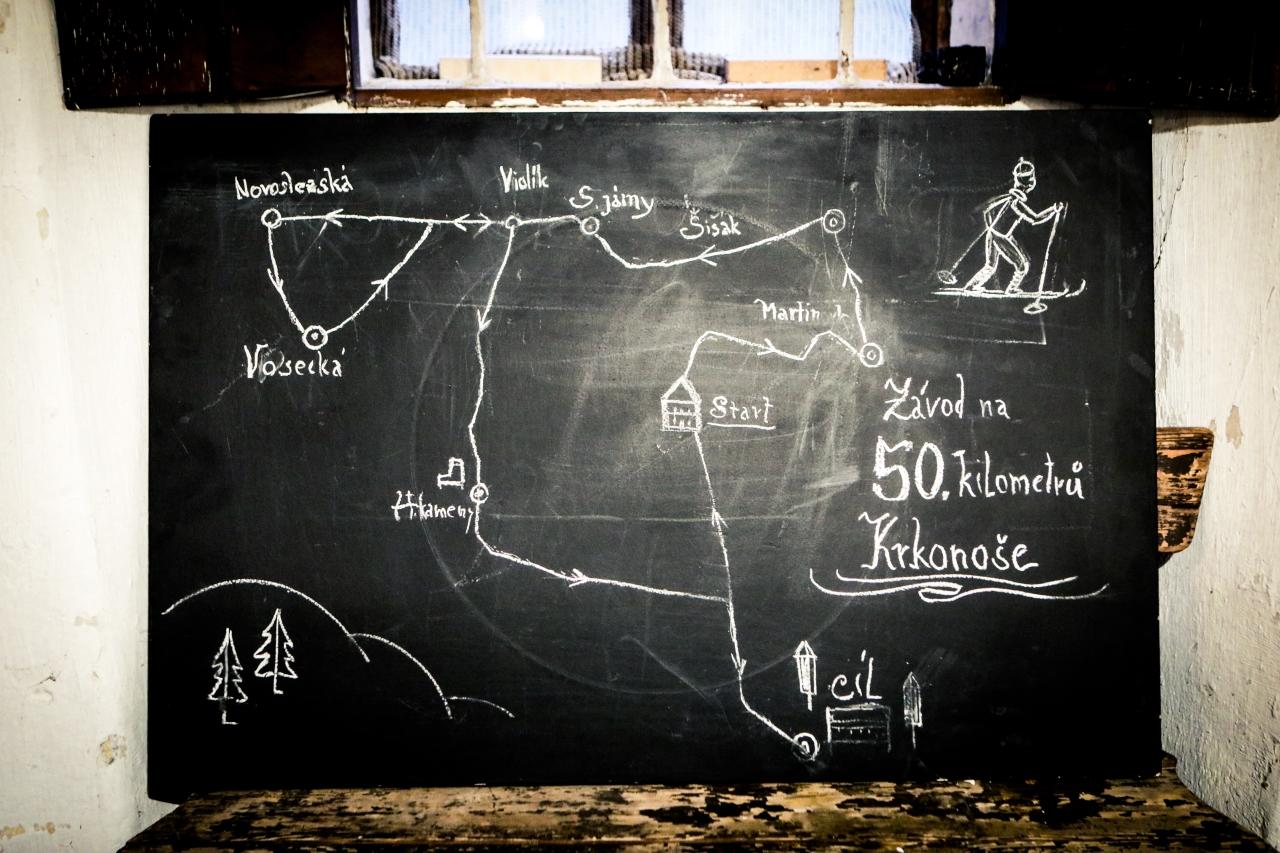 Novoslezská
Violík
S. jámy
Šišák
Martin
Vosecká
Start
H. kameny
Závod na
50. kilometrů
Krkonoše
cíl